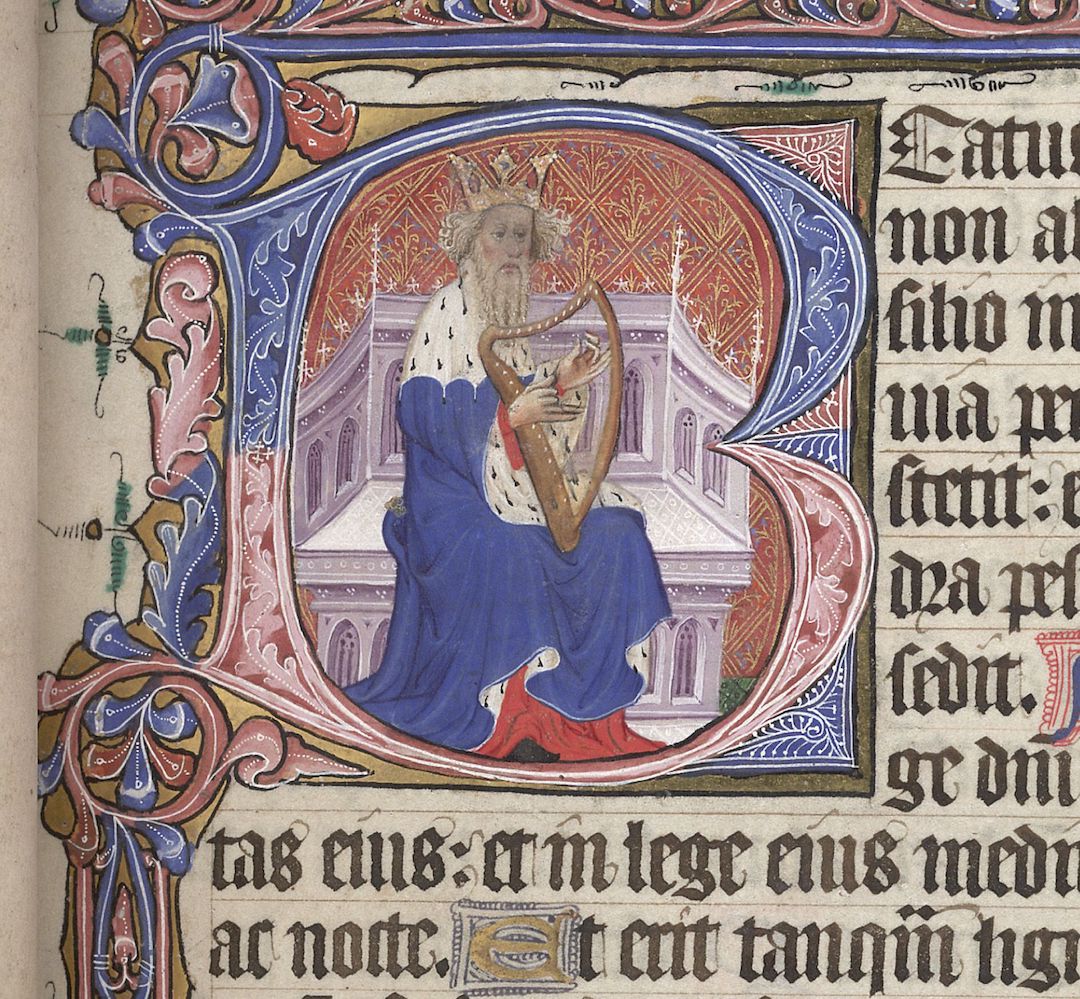 BEatus
non ab
silio im
uia pec
stetit: e
dra pes
sedit.
ge dñi
tas eius: et in lege eius medi
ac nocte. Et erit tanqm̄ lign